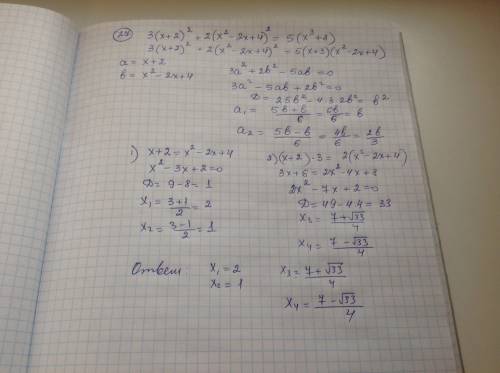 27) 3(x+2)² + 2(x²-2x+4)² = 5(x³+8)
3(x+2)² + 2(x²-2x+4)² = 5(x+2)(x²-2x+4)
a = x+2
b = x²-2x+4
3a² + 2b² - 5ab = 0
3a² - 5ab + 2b² = 0
D = 25b² - 4·3·2b² = b²
a₁ = (5b+b)/6 = 6b/6 = b
a₂ = (5b-b)/6 = 4b/6 = 2b/3
1) x+2 = x²-2x+4
x²-3x+2=0
D = 9-8 = 1
x₁ = (3+1)/2 = 2
x₂ = (3-1)/2 = 1
2) (x+2)·3 = 2(x²-2x+4)
3x+6 = 2x²-4x+8
2x²-7x+2=0
D = 49-4·4 = 33
x₃ = (7+√33)/4
x₄ = (7-√33)/4
Ответ x₁ = 2
x₂ = 1
x₃ = (7+√33)/4
x₄ = (7-√33)/4